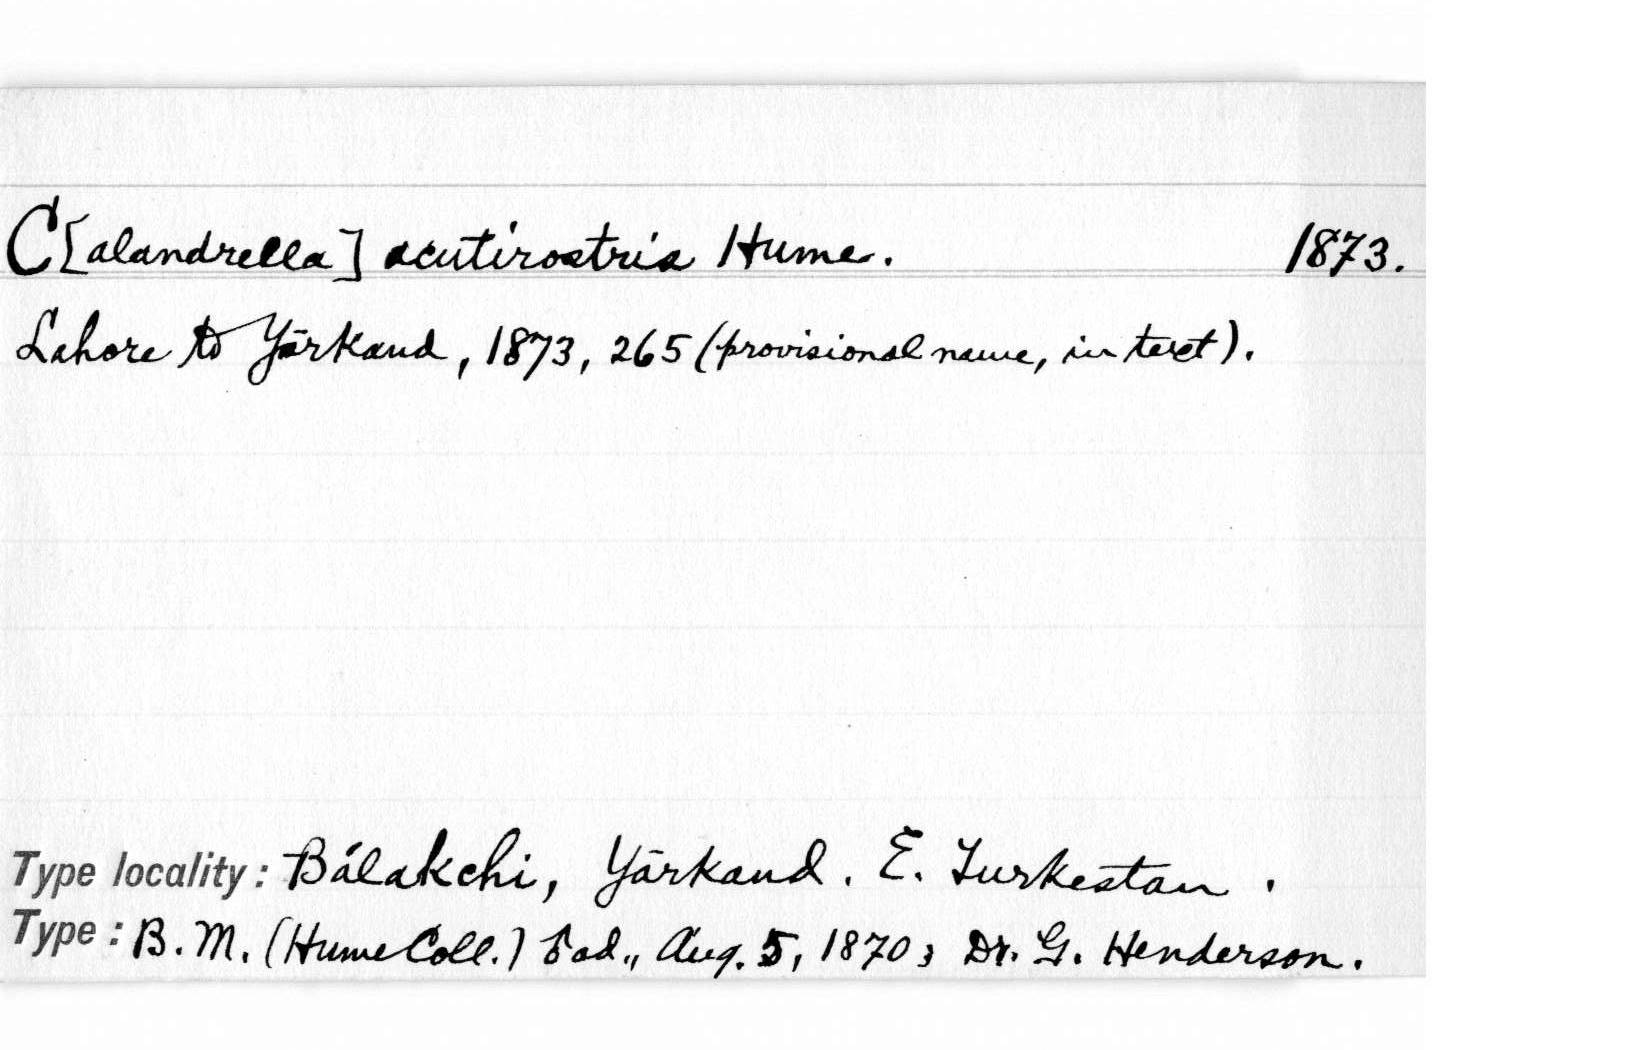 C[alandrella] acutirostris Hume. 1873.
Lahore to Yārkand, 1873, 265 (provisional name, in text).
Type locality: Bálakchi, Yārkand. E. Turkestan.
Type: B. M. (Hume Coll.) ad., Aug. 5, 1870; Dr. G. Henderson.